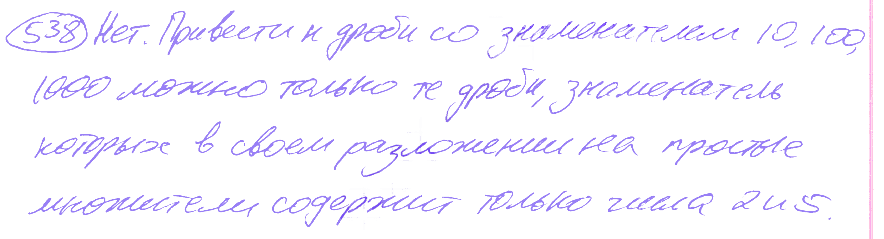 538 Нет. Привести к дроби со знаменателем 10, 100,
1000 можно только те дроби, знаменатель
которых в своем разложении на простые
множители содержит только числа 2 и 5.